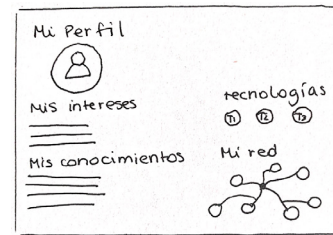 Mi Perfil
Mis intereses
Mis conocimientos
tecnologías
T1 T2 T3
Mi red